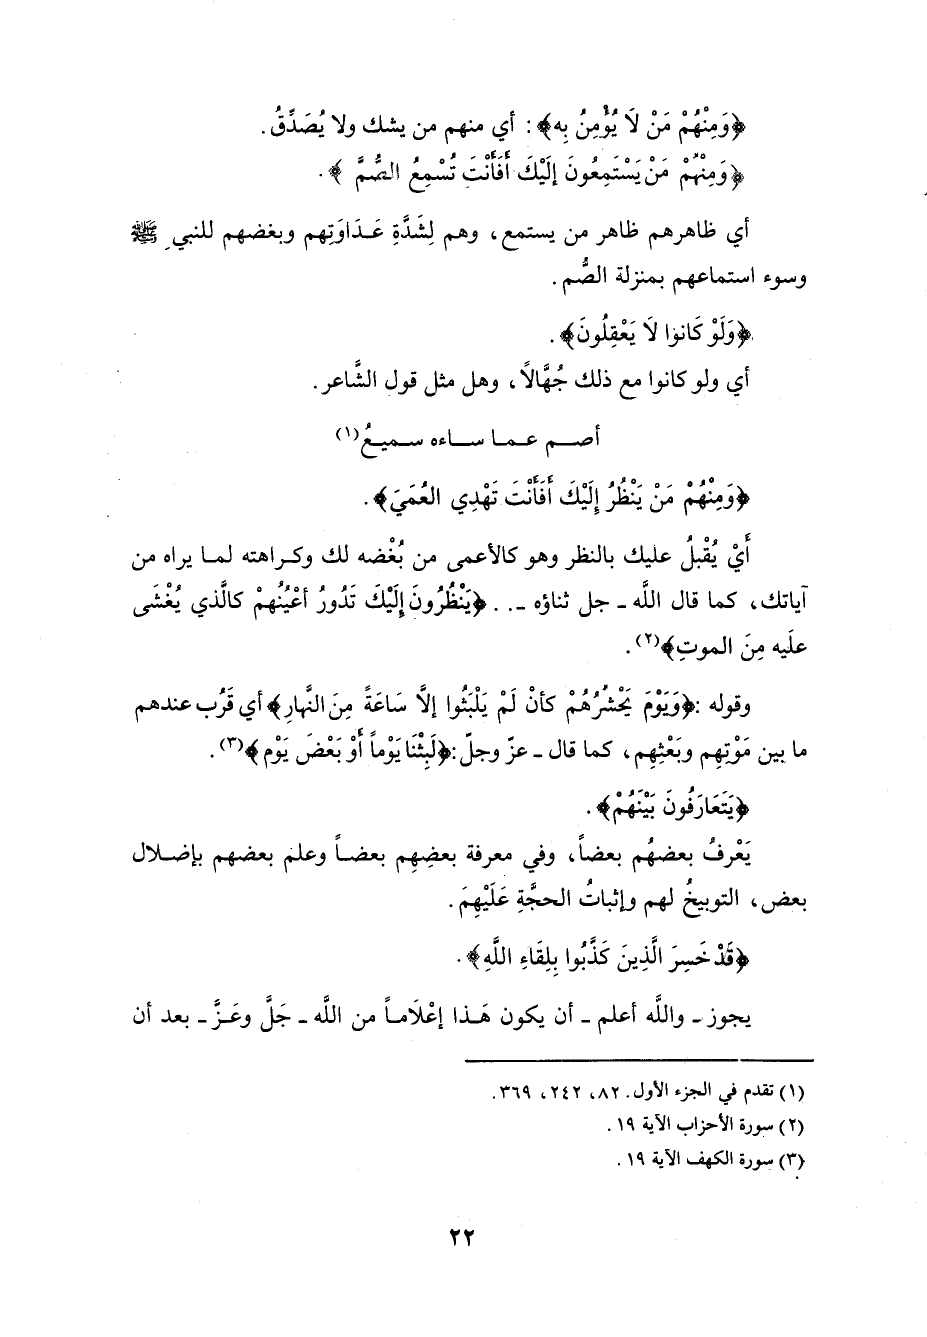 ﴿وَمِنْهُمْ مَنْ لَا يُؤْمِنُ بِه﴾: أي منهم من يشك ولا يُصَدِّقُ.
﴿وَمِنْهُمْ مَنْ يَسْتَمِعُونَ إلَيْكَ أَفَأَنْتَ تُسْمِعُ الصُّمَّ﴾.
أي ظاهرهم ظاهر من يستمع، وهم لِشَدَّةِ عَدَاوَتِهم وبغضهم للنبي ﷺ
وسوء استماعهم بمنزلة الصُّم.
﴿وَلَوْ كَانوا لَا يَعْقِلُونَ﴾.
أي ولو كانوا مع ذلك جُهَّالاً، وهل مثل قول الشَّاعر.
أصم عما ساءه سميعُ(١)
﴿وَمِنْهُمْ مَنْ يَنْظُرُ إلَيْكَ أَفَأَنْتَ تَهْدِي العُمَيَ﴾.
أَيْ يُقْبلُ عليك بالنظر وهو كالأعمى من بُغْضه لك وكراهته لما يراه من
آياتك، كما قال اللَّه ـ جل ثناؤه ـ.. ﴿يَنْظُرُونَ إلَيْكَ تَدُورُ أعْيُنُهمْ كالَّذي يُغْشَى
علَيه مِنَ الموتِ﴾(٢).
وقوله :﴿وَيَوْمَ يَحْشُرُهُمْ كأنْ لَمْ يَلْبَثُوا إلاَّ سَاعَةً مِنَ النَّهارِ﴾ أي قَرُب عندهم
ما بين مَوْتِهِم وبَعْثِهِم، كما قال ـ عزّ وجلّ :﴿لَبِثْنَا يَوْماً أوْ بَعْضَ يَوْم﴾(٣).
﴿يَتَعَارَفُونَ بَيْنَهُمْ﴾.
يَعْرفُ بعضهُم بعضاً، وفي معرفة بعضِهِم بعضاً وعلم بعضهم بإضلال
بعض، التوبيخُ لهم وإثباتُ الحجَّةِ عَلَيْهِمَ.
﴿قَدْ خَسِرَ الَّذِينَ كَذَّبُوا بِلِقَاءِ اللَّهِ﴾.
يجوز ـ واللَّه أعلم ـ أن يكون هَذا إعْلَاماً من اللَّه ـ جَلَّ وعَزَّ ـ بعد أن
(١) تقدم في الجزء الأول. ٨٢، ٢٤٢، ٣٦٩.
(٢) سورة الأحزاب الآية ١٩.
(٣) سورة الكهف الآية ١٩.
٢٢